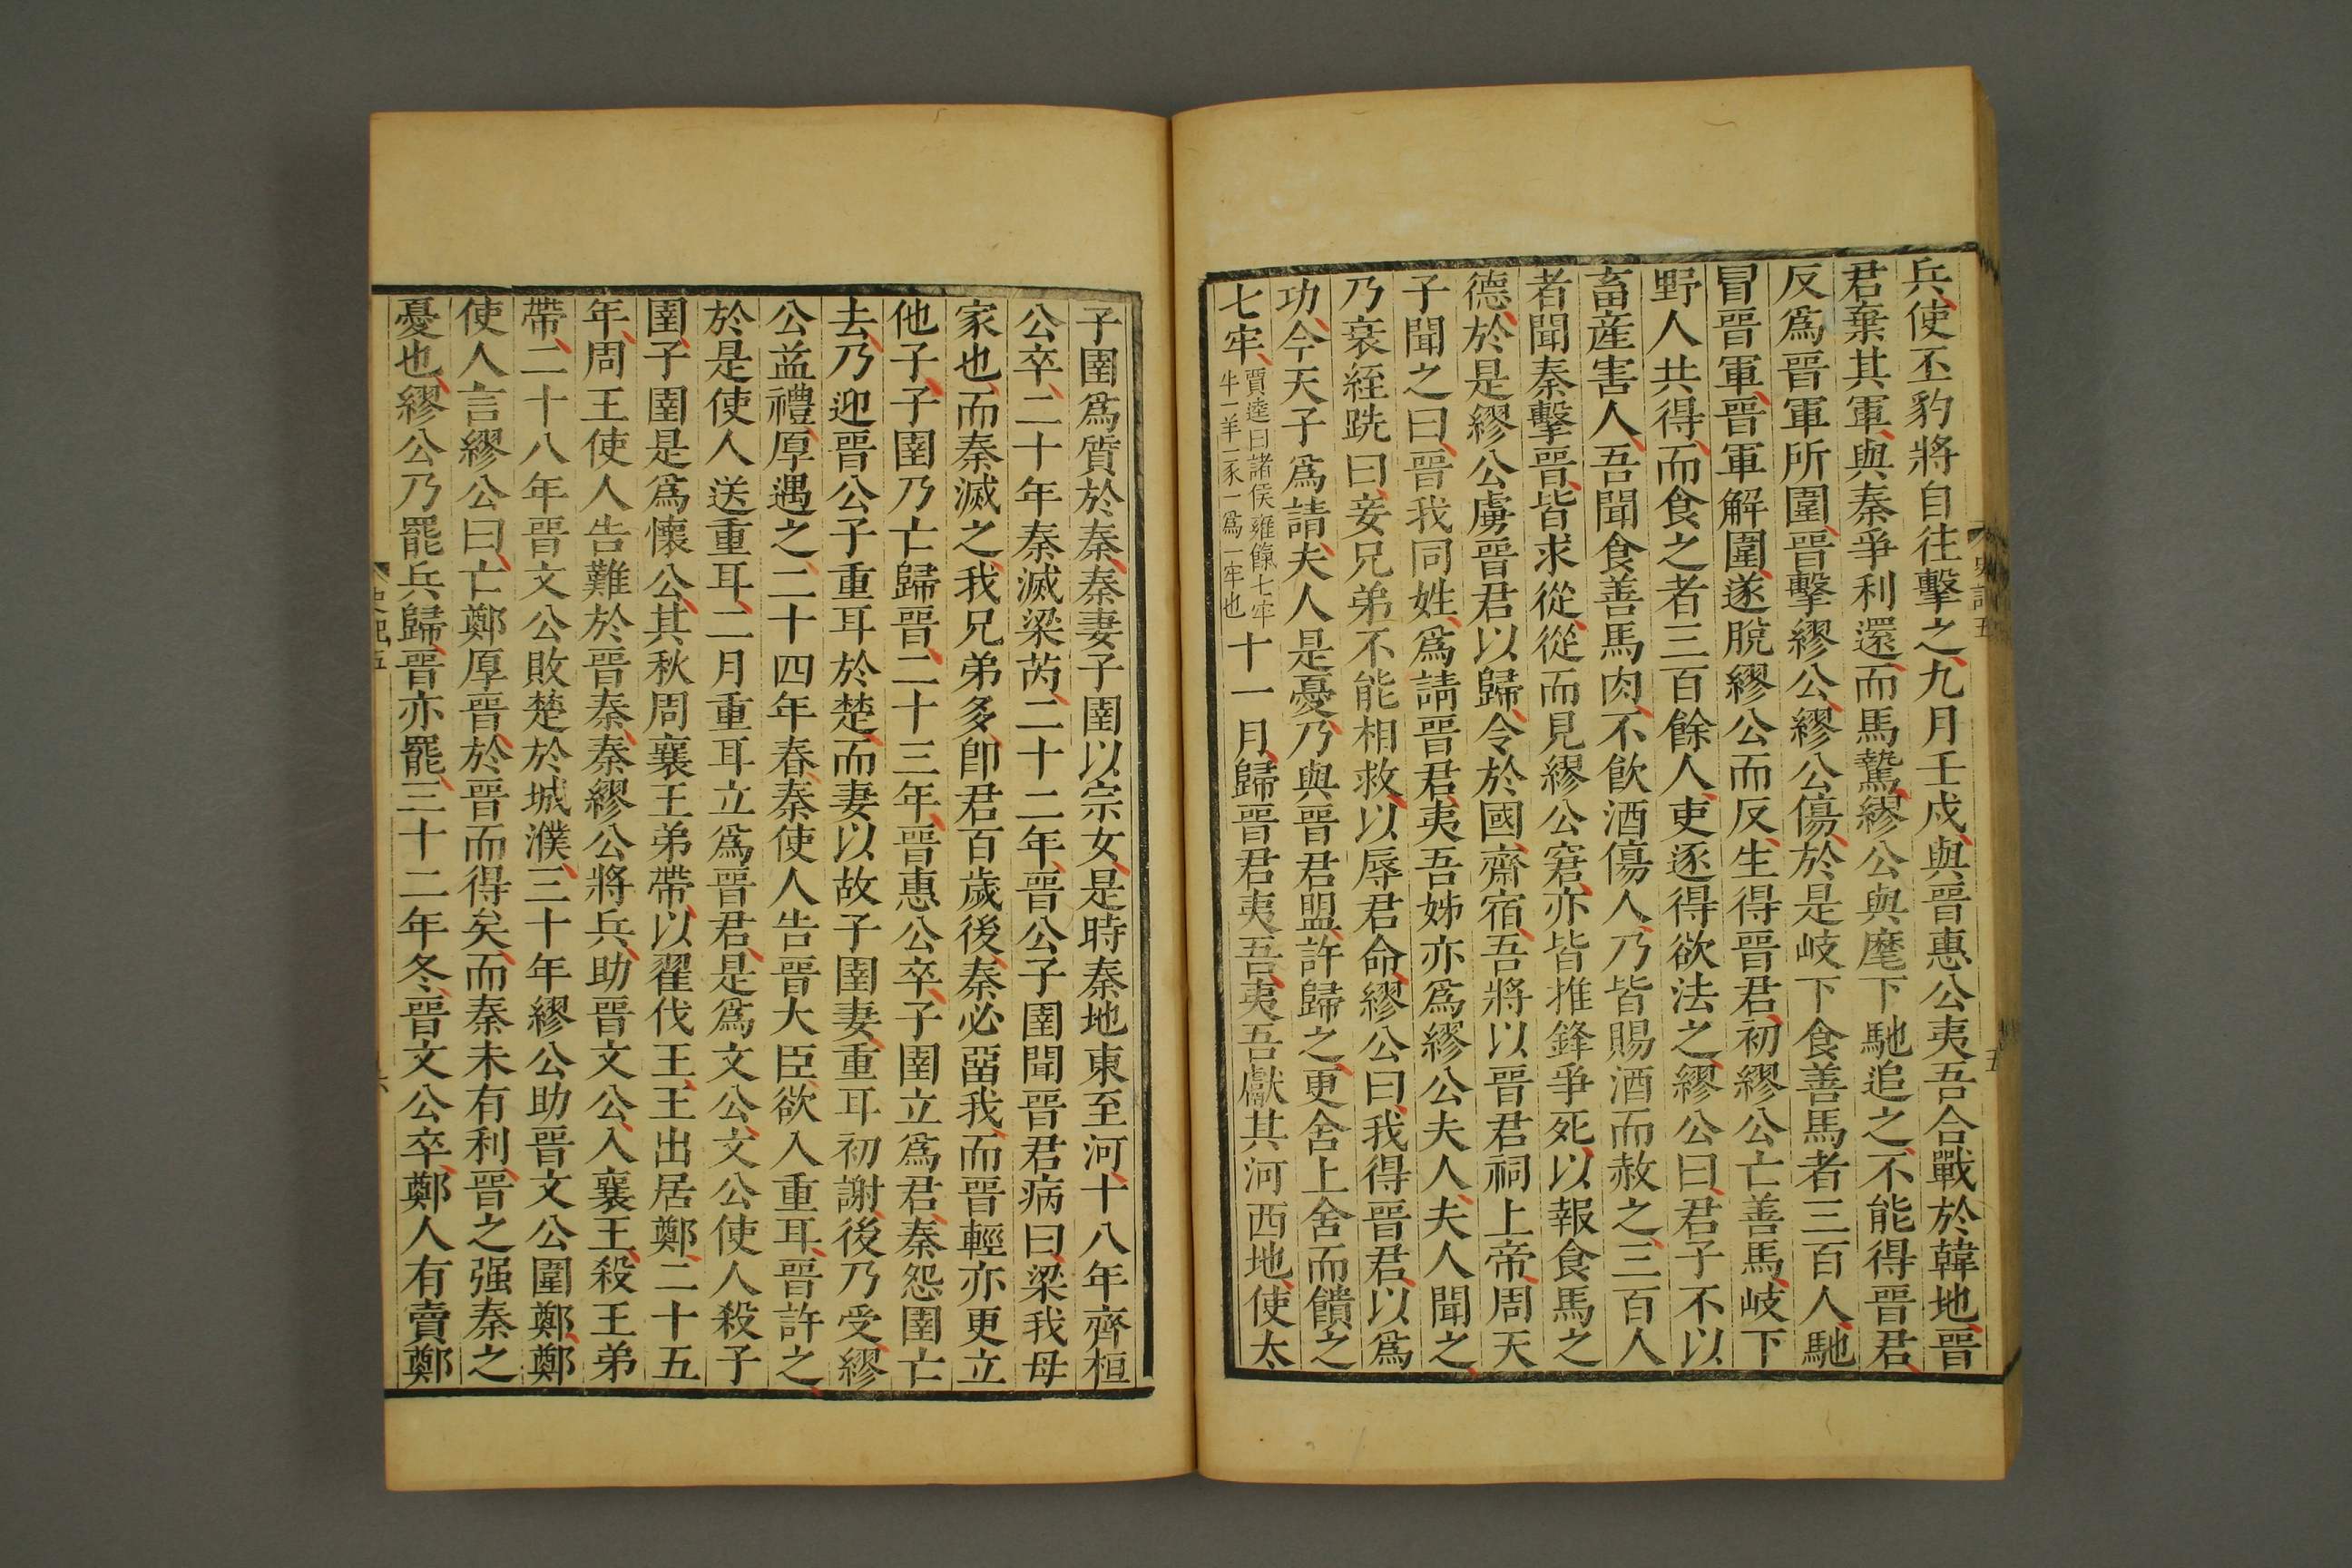 兵使丕豹將自往擊之九月壬戌與晉惠公夷吾合戰於韓地晉
君棄其軍與秦爭利還而馬騺繆公與麾下馳追之不能得晉君
反爲晉軍所圍晉擊繆公繆公傷於是岐下食善馬者三百人馳
冒晉軍晉軍解圍遂脫繆公而反生得晉君初繆公亡善馬岐下
野人共得而食之者三百餘人吏逐得欲法之繆公曰君子不以
畜產害人吾聞食善馬肉不飲酒傷人乃皆賜酒而赦之三百人
者聞秦擊晉皆求從從而見繆公窘亦皆推鋒爭死以報食馬之
德於是繆公虜晉君以歸令於國齋宿吾將以晉君祠上帝周天
子聞之曰晉我同姓爲請晉君夷吾姊亦爲繆公夫人夫人聞之
乃衰絰跣曰妾兄弟不能相救以辱君命繆公曰我得晉君以爲
功今天子爲請夫人是憂乃與晉君盟許歸之更舍上舍而饋之
七牢賈逵曰諸侯雍餼七牢牛一羊一豕一爲一牢也十一月歸晉君夷吾夷吾獻其河西地使太
史記五
五
子圉爲質於秦秦妻子圉以宗女是時秦地東至河十八年齊桓
公卒二十年秦滅梁芮二十二年晉公子圉聞晉君病曰梁我母
家也而秦滅之我兄弟多卽君百歲後秦必畱我而晉輕亦更立
他子子圉乃亡歸晉二十三年晉惠公卒子圉立爲君秦怨圉亡
去乃迎晉公子重耳於楚而妻以故子圉妻重耳初謝後乃受繆
公益禮厚遇之二十四年春秦使人告晉大臣欲入重耳晉許之
於是使人送重耳二月重耳立爲晉君是爲文公文公使人殺子
圉子圉是爲懷公其秋周襄王弟帶以翟伐王王出居鄭二十五
年周王使人告難於晉秦秦繆公將兵助晉文公入襄王殺王弟
帶二十八年晉文公敗楚於城濮三十年繆公助晉文公圍鄭鄭
使人言繆公曰亡鄭厚晉於晉而得矣而秦未有利晉之强秦之
憂也繆公乃罷兵歸晉亦罷三十二年冬晉文公卒鄭人有賣鄭
史記五